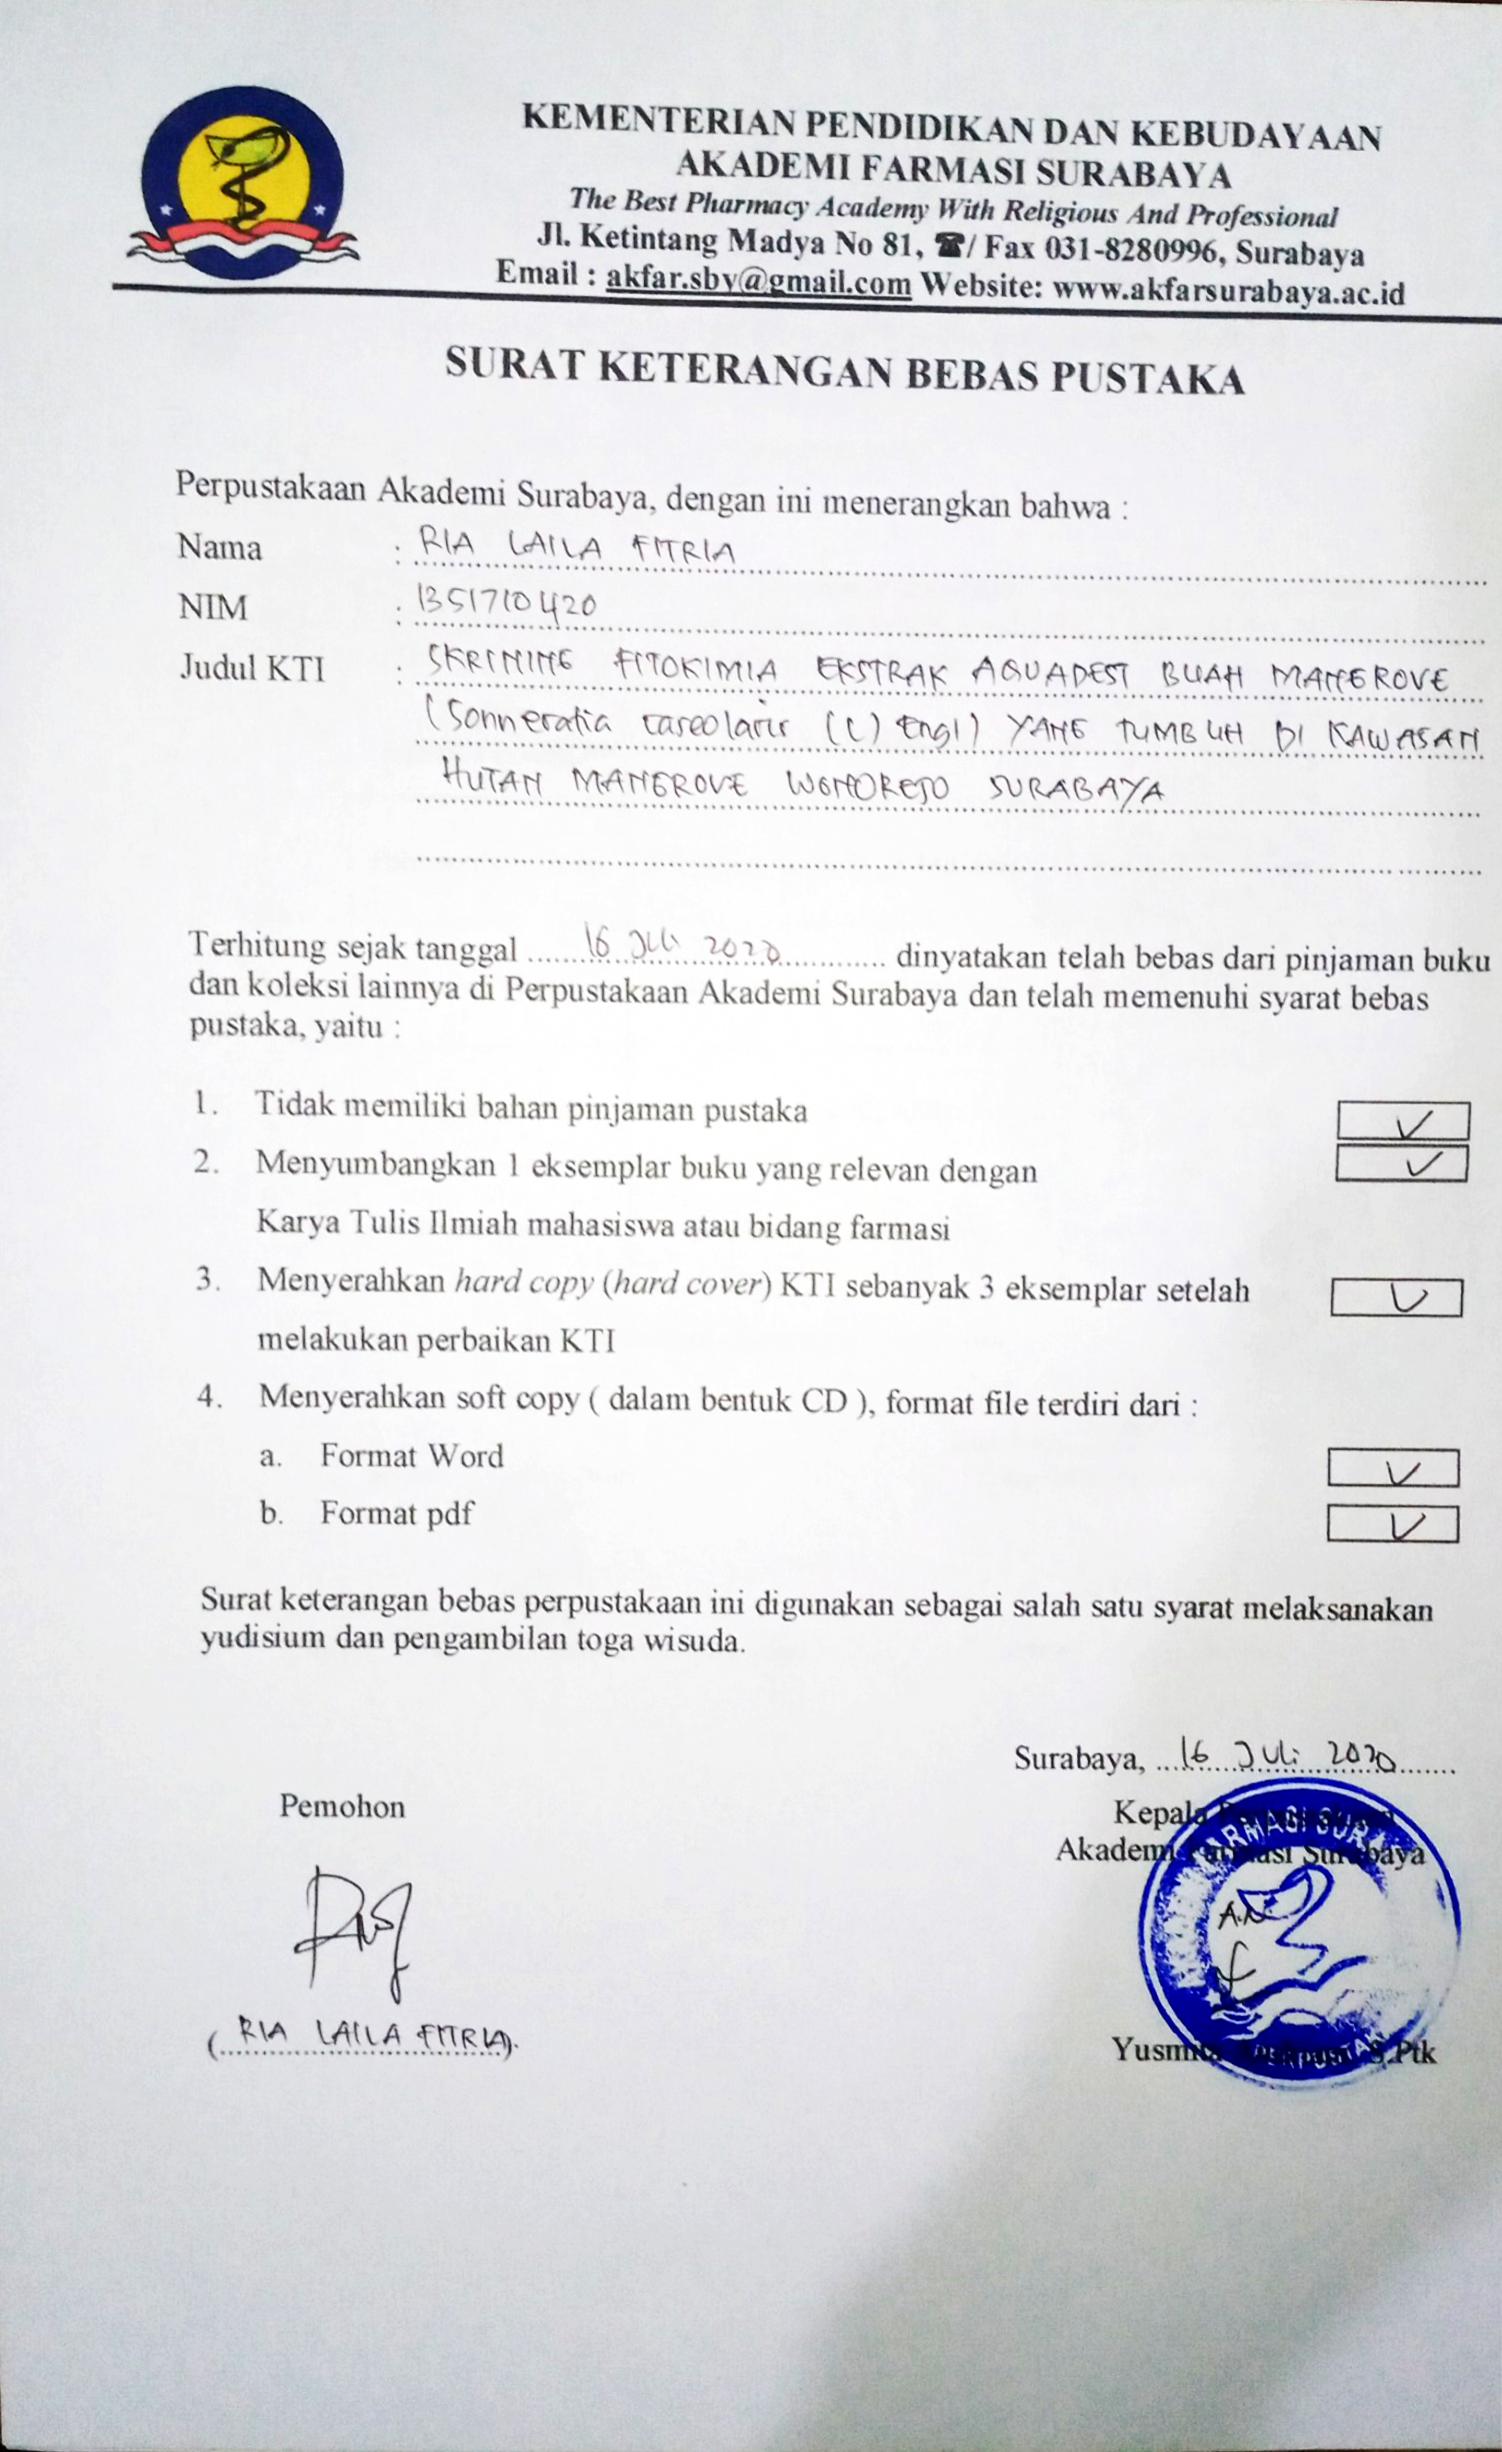 KEMENTERIAN PENDIDIKAN DAN KEBUDAYAAN
AKADEMI FARMASI SURABAYA
The Best Pharmacy Academy With Religious And Professional
Jl. Ketintang Madya No 81, ☎/ Fax 031-8280996, Surabaya
Email : akfar.sby@gmail.com Website: www.akfarsurabaya.ac.id
SURAT KETERANGAN BEBAS PUSTAKA
Perpustakaan Akademi Surabaya, dengan ini menerangkan bahwa :
Nama : RIA LAILA FITRIA
NIM : 1351710420
Judul KTI : SKRINING FITOKIMIA EKSTRAK AQUADEST BUAH MANGROVE
(Sonneratia caseolaris (L) Engl) YANG TUMBUH DI KAWASAN
HUTAN MANGROVE WONOREJO SURABAYA
Terhitung sejak tanggal 16 Juli 2020 dinyatakan telah bebas dari pinjaman buku
dan koleksi lainnya di Perpustakaan Akademi Surabaya dan telah memenuhi syarat bebas
pustaka, yaitu :
1. Tidak memiliki bahan pinjaman pustaka ✓
2. Menyumbangkan 1 eksemplar buku yang relevan dengan ✓
Karya Tulis Ilmiah mahasiswa atau bidang farmasi
3. Menyerahkan hard copy (hard cover) KTI sebanyak 3 eksemplar setelah ✓
melakukan perbaikan KTI
4. Menyerahkan soft copy ( dalam bentuk CD ), format file terdiri dari :
a. Format Word ✓
b. Format pdf ✓
Surat keterangan bebas perpustakaan ini digunakan sebagai salah satu syarat melaksanakan
yudisium dan pengambilan toga wisuda.
Surabaya, 16 Juli 2020
Pemohon
Kepala
Akademi Farmasi Surabaya
A.N
(RIA LAILA FITRIA).
S.Ptk